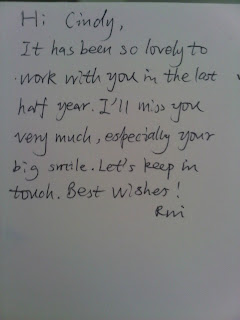 Hi Cindy,
It has been so lovely to
work with you in the last
half year. I'll miss you
very much, especially your
big smile. Let's keep in
touch. Best Wishes!